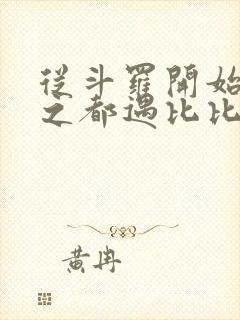 從斗羅開始
之都遇比比
黃冉